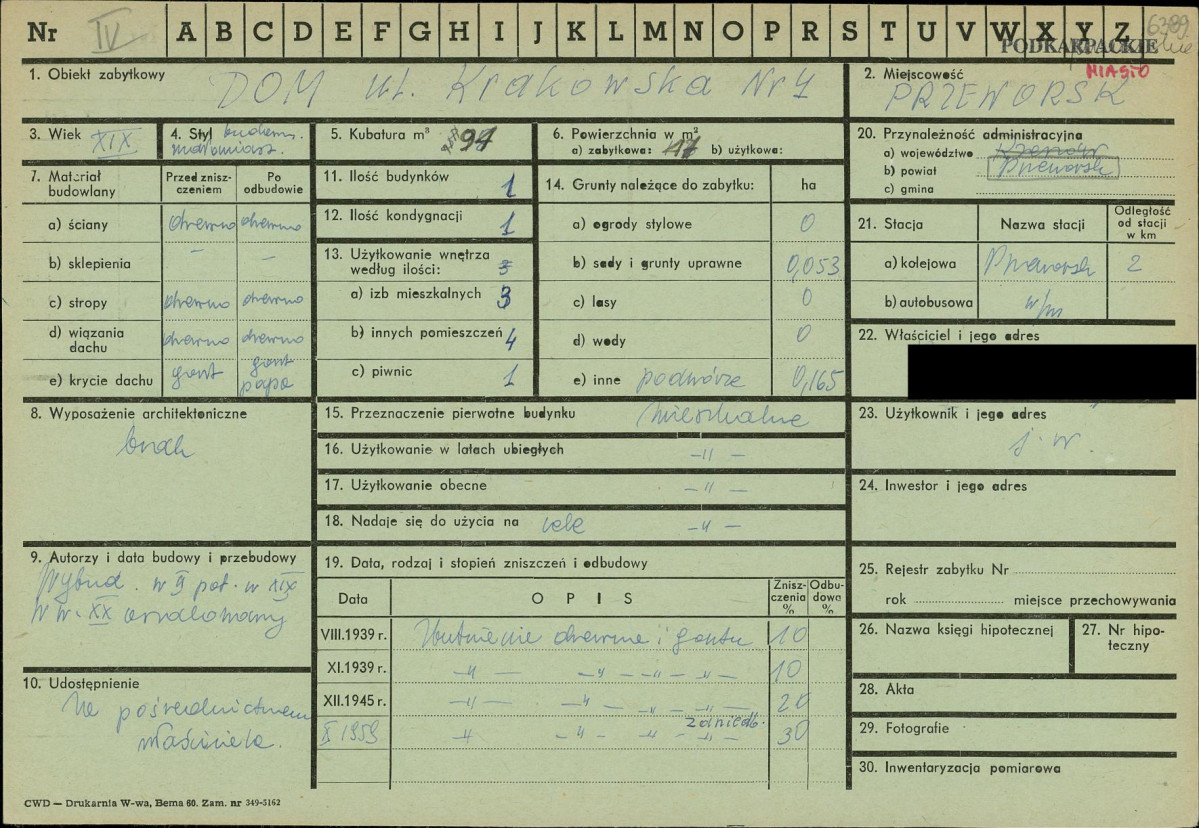 Nr IV A B C D E F G H I J K L M N O P R S T U V W X Y Z 6389
PODKARPACKIE
MIASTO
1. Obiekt zabytkowy DOM ul. Krakowska Nr 4
2. Miejscowość PRZEWORSK
3. Wiek XIX
4. Styl budown. małomiast.
5. Kubatura m³ 94
6. Powierzchnia w m²
a) zabytkowa: 47 b) użytkowa:
20. Przynależność administracyjna
a) województwo Rzeszów
b) powiat Przeworsk
c) gmina
7. Materiał budowlany
Przed zniszczeniem
Po odbudowie
a) ściany drewno drewno
b) sklepienia – –
c) stropy drewno drewno
d) wiązania dachu drewno drewno
e) krycie dachu gont gont papa
11. Ilość budynków 1
12. Ilość kondygnacji 1
13. Użytkowanie wnętrza według ilości:
a) izb mieszkalnych 3
b) innych pomieszczeń 4
c) piwnic 1
14. Grunty należące do zabytku: ha
a) ogrody stylowe 0
b) sady i grunty uprawne 0,053
c) lasy 0
d) wody 0
e) inne podwórze 0,165
21. Stacja
Nazwa stacji
Odległość od stacji w km
a) kolejowa Przeworsk 2
b) autobusowa w/m
22. Właściciel i jego adres
8. Wyposażenie architektoniczne
brak
15. Przeznaczenie pierwotne budynku mieszkalne
16. Użytkowanie w latach ubiegłych –„–
17. Użytkowanie obecne –„–
18. Nadaje się do użycia na cele –„–
23. Użytkownik i jego adres
j. w.
24. Inwestor i jego adres
9. Autorzy i data budowy i przebudowy
Wybud. w II poł. w XIX
W w. XX
10. Udostępnienie
Za pośrednictwem
właściciela.
19. Data, rodzaj i stopień zniszczeń i odbudowy
Data
OPIS
Zniszczenia %
Odbudowa %
VIII.1939 r. Butwienie drewna i gontu 10
XI.1939 r. –„– –„– –„– –„– 10
XII.1945 r. –„– –„– –„– –„– 20
X 1959 –„– –„– –„– –„– 30
25. Rejestr zabytku Nr
rok miejsce przechowywania
26. Nazwa księgi hipotecznej
27. Nr hipoteczny
28. Akta
29. Fotografie
30. Inwentaryzacja pomiarowa
CWD — Drukarnia W-wa, Bema 60. Zam. nr 349-5162